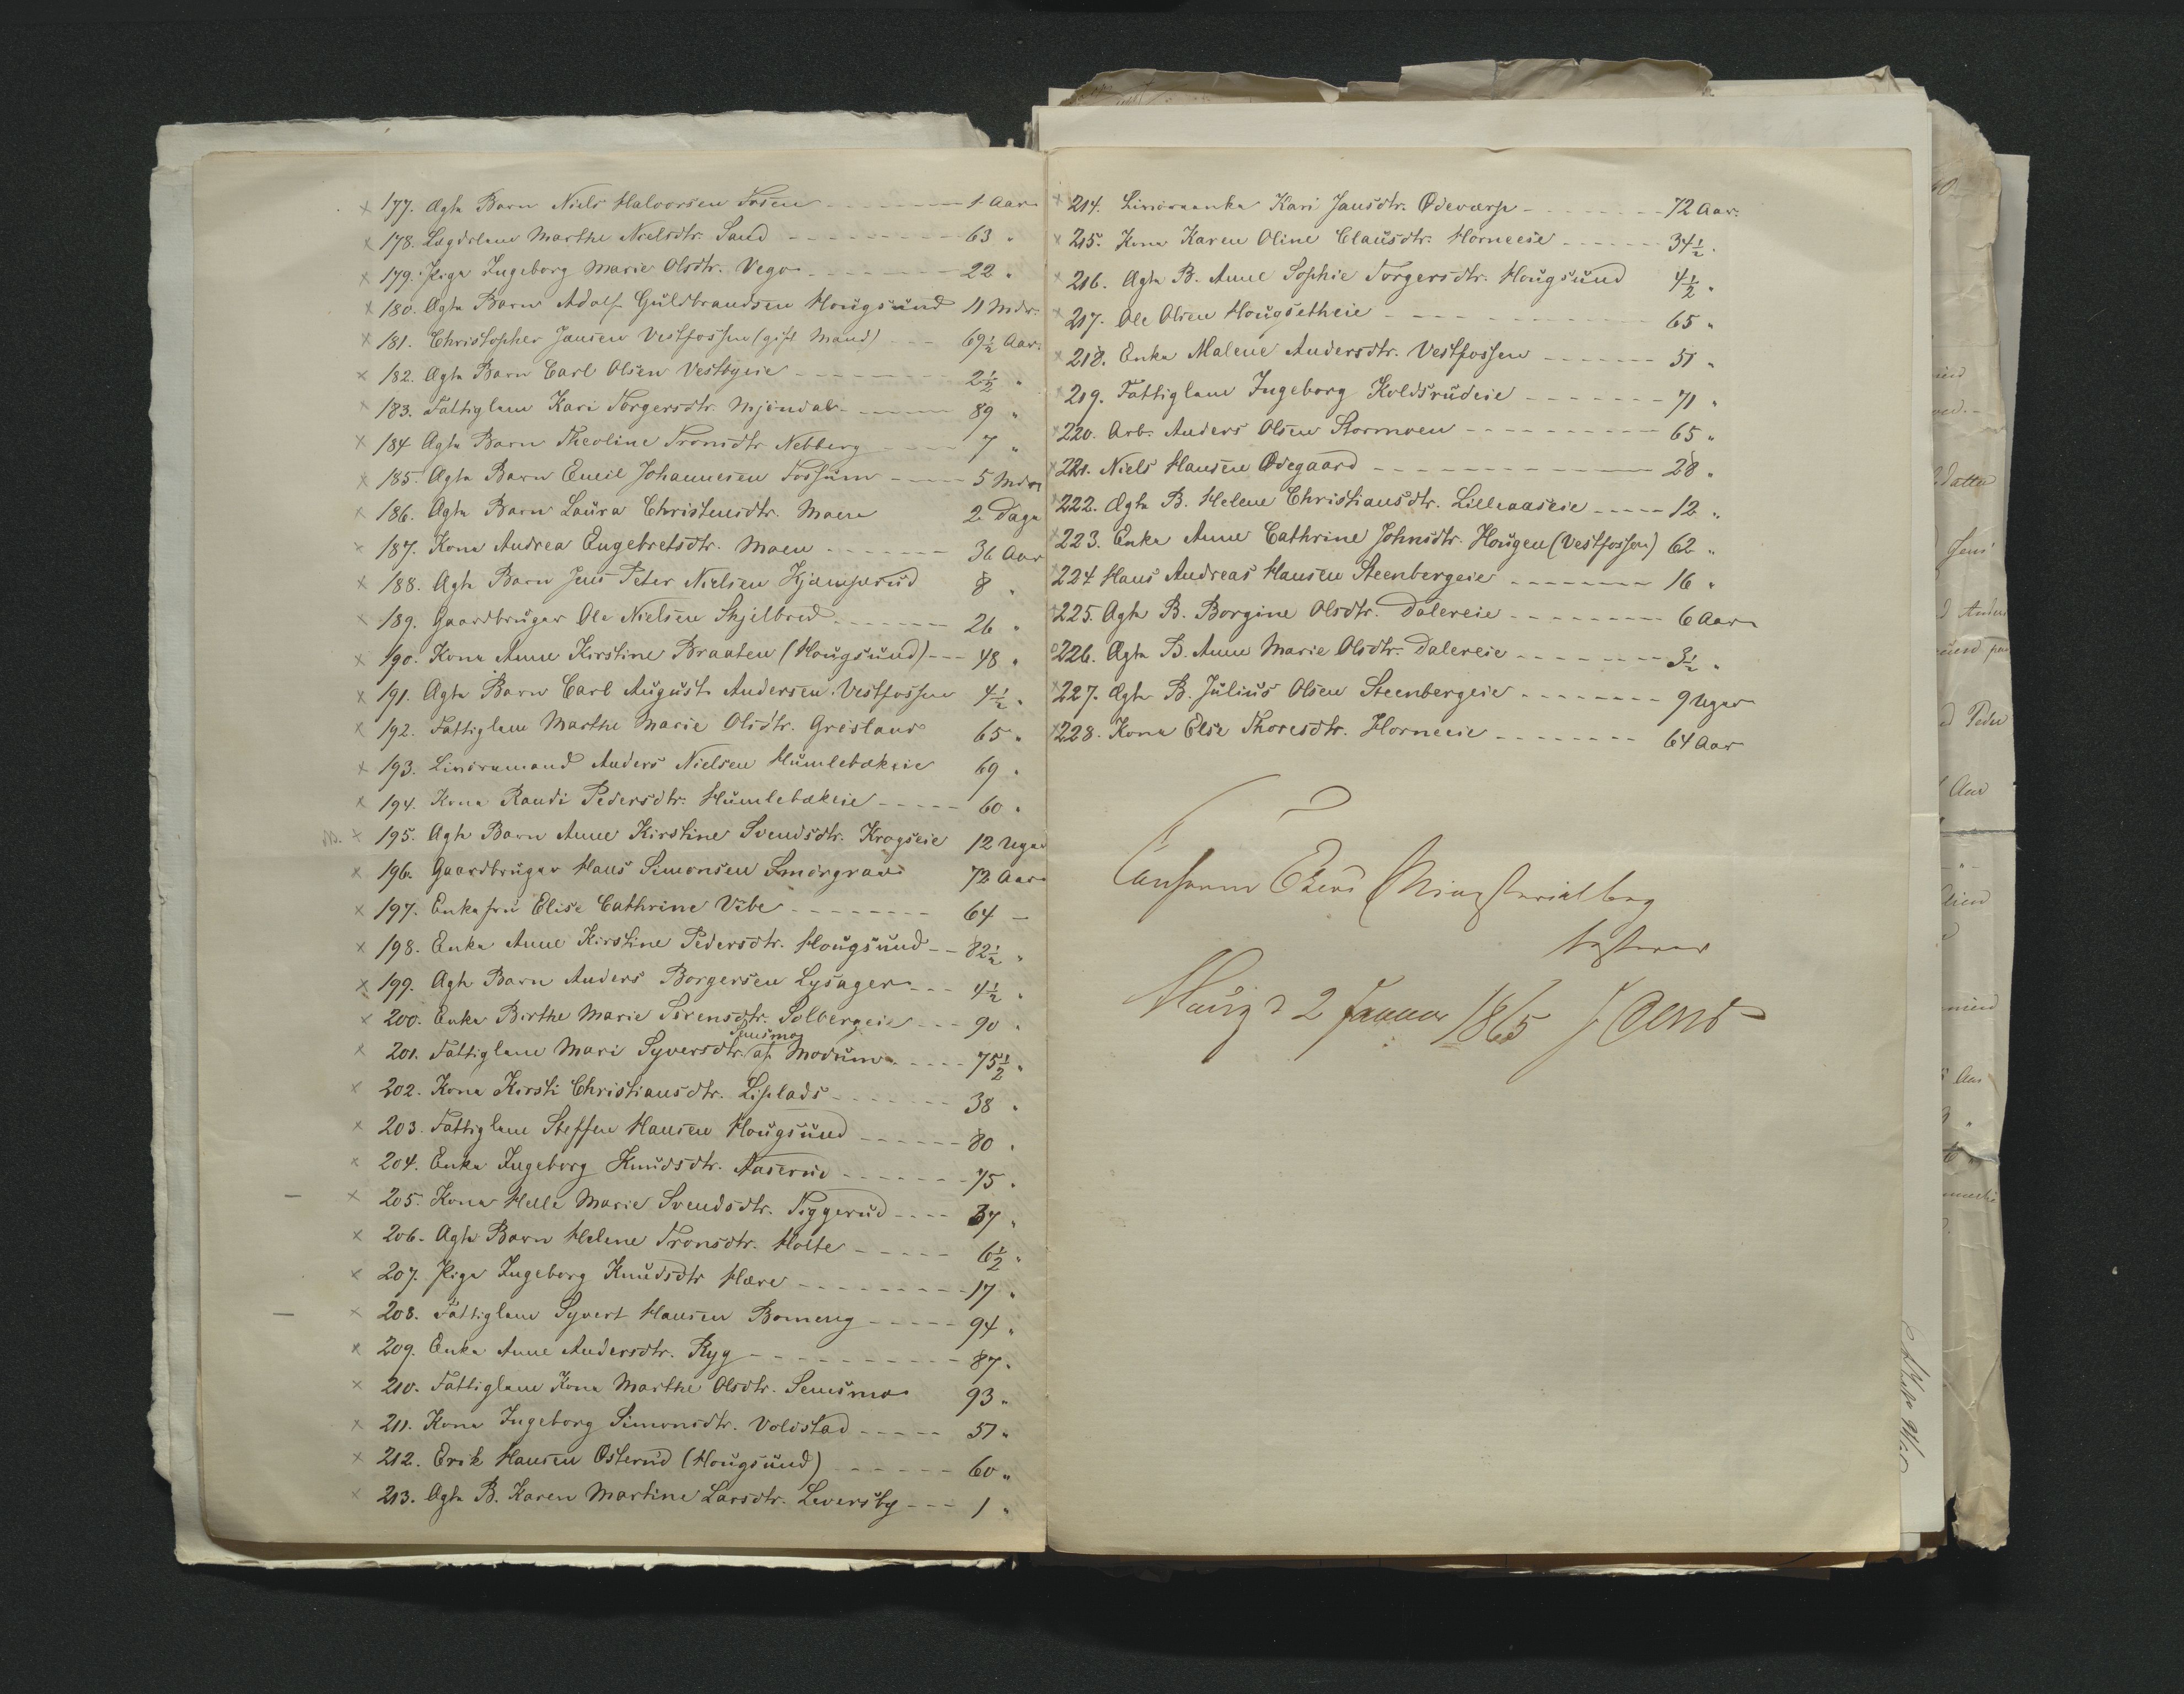 177. Ægte Barn Niels Halvorsen Fosen - - - 1 Aar
178. Lægdslem Marthe Nielsdtr. Sand - - - 63 "
179. Pige Ingeborg Marie Olsdtr. Vego - - - 22 "
180. Ægte Barn Adolf Guldbrandsen Hougsund 11 Mdr.
181. Christopher Jansen Vestfossen (gift Mand) - - - 69½ Aar.
182. Ægte Barn Carl Olsen Vestbyeie - - - 2½ "
183. Fattiglem Kari Torgersdtr. Mjøndal - - - 89 "
184 Ægte Barn Theoline Tronsdtr Nebberg - - - 7 "
185. Ægte Barn Emil Johannesen Fossum - - - 5 Mdr
186. Ægte Barn Laura Christensdtr. Moen 2 Dage
187. Kone Andrea Engebretsdtr. Moen - - - 36 Aar
188. Ægte Barn Jens Peter Nielsen Kjemperud 8 "
189. Gaardbruger Ole Nielsen Skjelbred - - - 26 "
190. Kone Anne Kirstine Braaten (Hougsund) - - - 48 "
191. Ægte Barn Carl August Andersen Vestfossen 4½ "
192. Fattiglem Marthe Marie Olsdtr. Grisland 65 "
193. Anders Nielsen Humlebækeie 69 "
194. Kone Randi Pedersdtr. Humlebækeie - - - 60 "
NB. 195. Ægte Barn Anne Kirstine Svendsdtr. Krogseie 12 Uger
196. Gaardbruger Hans Simonsen Smørgrav 72 Aar
197. Enkefru Elise Cathrine Vibe - - - 64 —
198. Enke Anne Kirstine Pedersdtr. Hougsund - - 82½ "
199. Ægte Barn Anders Borgersen Lysager - - - 4½ "
200. Enke Birthe Marie Sørensdtr. Solbergeie - - - 90 "
Semsmo
201. Fattiglem Mari Syversdtr. af Modum - - - 75½ "
202. Kone Kirsti Christiansdtr. Liplads - - - 38 "
203. Fattiglem Steffen Hansen Hougsund - - - 80 "
204. Enke Ingeborg Knudsdtr. Aaserud - - - 75 "
205. Kone Helle Marie Svendsdtr. Tiggerud - - - 37 "
206. Ægte Barn Helene Tronsdtr. Holte - - - 6½ "
207. Pige Ingeborg Knudsdtr Hære - - - 17 "
208. Fattiglem Syvert Hansen Bomeng - - - 94 "
209. Enke Anne Andersdtr. Ryg - - - 87 "
210. Fattiglem Kone Marthe Olsdtr. Semsmo 93 "
211. Kone Ingeborg Simonsdtr. Voldstad - - - 51 "
212. Erik Hansen Østerud (Hougsund) - - - 60 "
213. Ægte B. Karen Martine Larsdtr. Leversby - - - 1 "
214. Kari Jansdtr. Ødeværp - - - 72 Aar.
215. Kone Karen Oline Clausdtr. Horneeie - - - 34½ "
216. Ægte B. Anne Sophie Torgersdtr. Hougsund 4½ "
217. Ole Olsen Hougsetheie - - - 65 "
218. Enke Malene Andersdtr. Vestfossen - - - 51 "
219. Fattiglem Ingeborg Koldsrudeie - - - 71 "
220. Arb. Anders Olsen Stormoen - - - 65 "
221. Niels Hansen Ødegaard - - - 28 "
222. Ægte B. Helene Christiansdtr. Lilleaaseie - - - 12 "
223. Enke Anne Cathrine Johnsdtr. Hougen (Vestfossen) 62 "
224 Hans Andreas Hansen Steenbergeie - - - 16 "
225. Ægte B. Borgine Olsdtr. Dalereie - - - 6 Aar
226. Ægte B. Anne Marie Olsdtr. Dalereie - - - 3½ "
227. Ægte B. Julius Olsen Steenbergeie - - - 9 Uger
228. Kone Else Thoresdtr. Horneeie - - - 64 Aar
Conform Ekers Ministerialbog
testerer
Houg d 2 Januar 1865